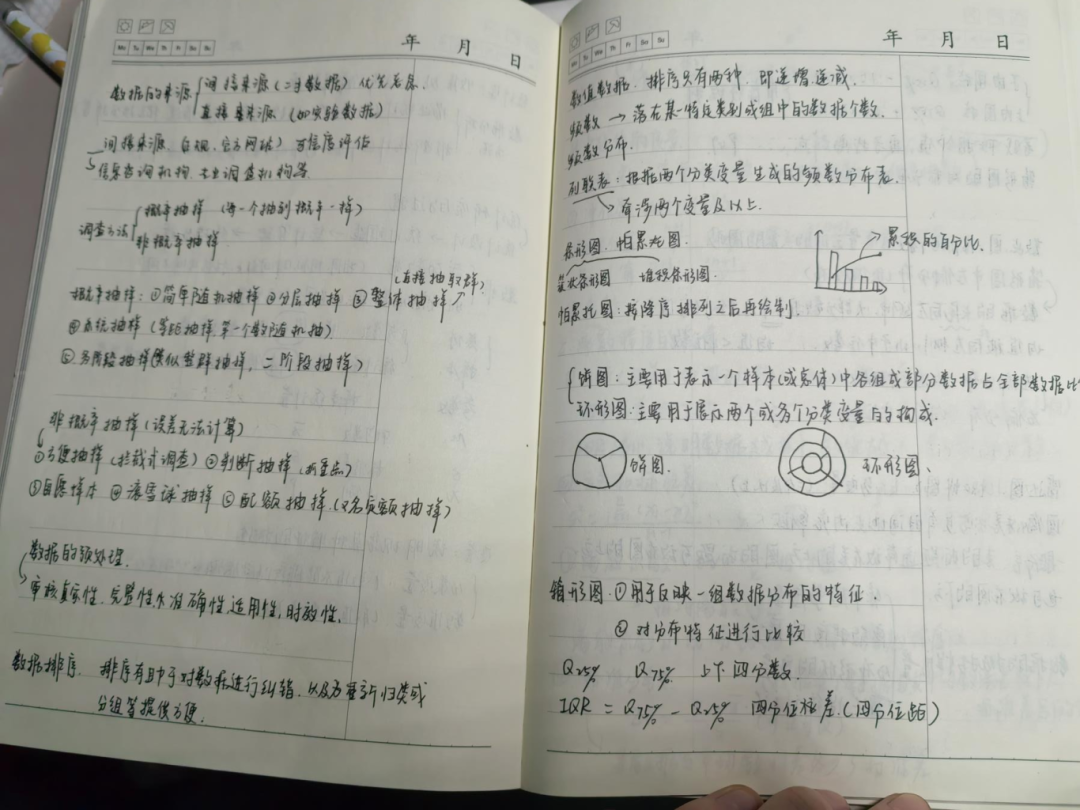 年 月 日
Mo Tu We Th Fr Sa Su
数据的来源 间接来源 (二手数据) 优先考虑
直接来源 (如实验数据)
间接来源 (出现,官方网站) 可信度评估
信息咨询机构 专业调查机构等
调查方法 概率抽样 (每一个抽到概率一样)
非概率抽样
(直接抽取群)
概率抽样: ①简单随机抽样 ②分层抽样 ③整体抽样
④系统抽样 (等距抽样,第一个数随机抽)
⑤多阶段抽样 (类似整群抽样, 二阶段抽样)
非概率抽样 (误差无法计算)
①方便抽样 (拦截式调查) ②判断抽样
①自愿样本 ④滚雪球抽样 ⑤配额抽样. (又名定额抽样)
数据的预处理.
审核真实性, 完整性, 准确性, 适用性, 时效性.
数据排序. 排序有助于对数据进行纠错. 以及为重新归类或
分组等提供方便.
年 月 日
Mo Tu We Th Fr Sa Su
数值数据. 排序只有两种 即递增递减.
频数 → 落在某一特定类别或组中的数据个数.
频数分布.
列联表: 根据两个分类变量生成的频数分布表.
有涉两个变量及以上.
条形图. 帕累托图. 累积的百分比.
簇状条形图 堆积条形图
帕累托图: 按降序排列之后再绘制.
饼图: 主要用于表示一个样本(或总体)中各组成部分数据占全部数据比
环形图: 主要用于展示两个或多个分类变量的构成.
饼图. 环形图.
箱形图. ①用于反映一组数据分布的特征.
② 对分布特征进行比较
Q25% Q75% 上下四分数.
IQR = Q75% - Q25% 四分位差. (四分位距)